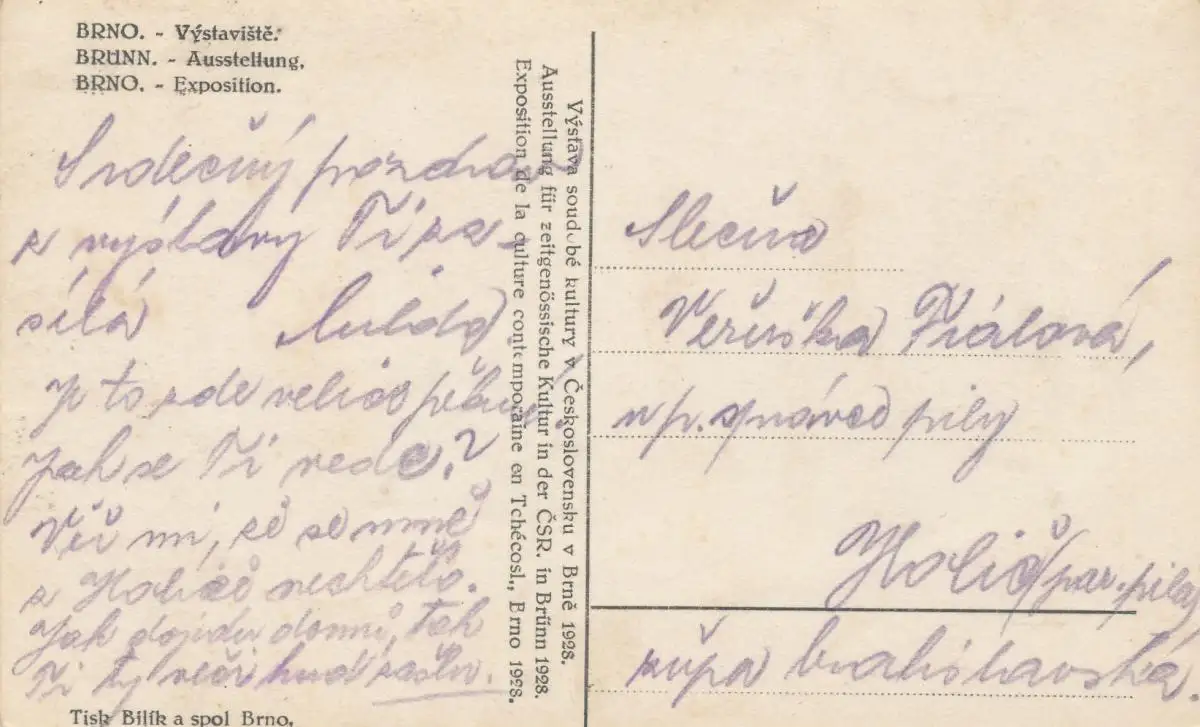 BRNO. - Výstaviště.
BRÜNN. - Ausstellung,
BRNO. - Exposition.
Srdečný pozdrav
z výstavy Ti za-
sílá Lulda
Je to zde velice pěkné!
Jak se Ti vede?
Věř mi, že se mně
z Holiče nechtělo.
Jak dojedu domů, tak
Ti ty věci hned zašlu.
Tisk Bilík a spol Brno,
Výstava soudobé kultury v Československu v Brně 1928.
Ausstellung für zeitgenössische Kultur in der ČSR. in Brünn 1928.
Exposition de la culture contemporaine en Tchécosl., Brno 1928.
Slečna
Věruška Fiálová,
np. správce pily
Holič/par. pila/
župa bratislavská.